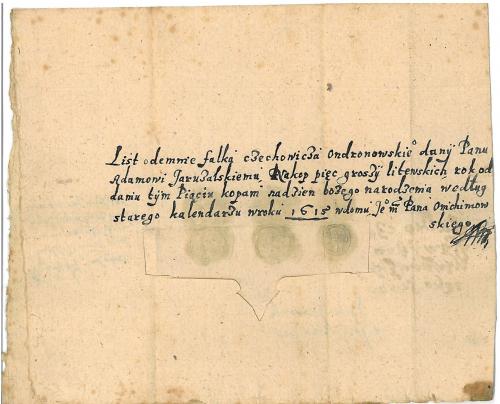 List odemnie falka Czechowicza Ondronowskie° dany Panu
Adamowi Jaruzalskiemu Nakop pięc groszy litewskich rok od
daniu tym Pięciu kopam nadzien bożego narodzenia według
starego kalendarzu wroku 1615 wdomu Je° mᶜ Pana Onichimow
skiego